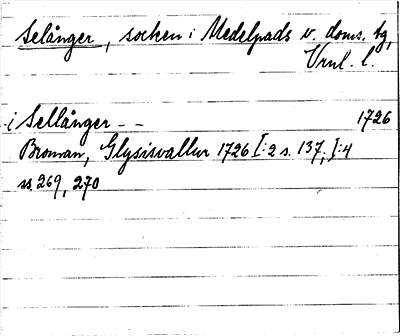 Selånger, socken i Medelpads v. doms. sg,
Vrnl. l.
i Sellånger - - 1726
Broman, Glysisvallur 1726 I:2 s. 137, I:4
ss. 269, 270